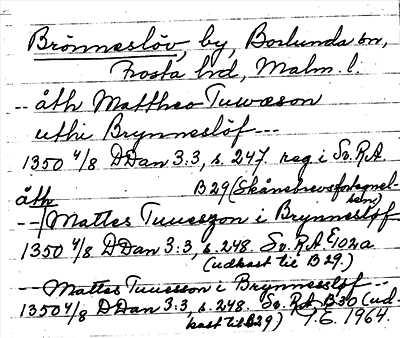 Brönneslöv, by, Borlunda sn,
Frosta hd, Malm. l.
-- åth Mattheo Tuwæson
uthi Brynneslöf ---
1350 4/8 DDan 3:3, s. 247. reg i Sv. R.A.
B29 (Skånebrevsfortegnel-
sen)
åth
--/Mattes Tuuesszon i Brynnesløff
1350 4/8 DDan 3:3, s. 248. Sv. R.A. E102a
(udkast til B29.)
-- Mattes Tuuesson i Brynnesløff --
1350 4/8 DDan 3:3, s. 248. Sv. R.A. B30 (ud-
kast til B29) T.E. 1964.